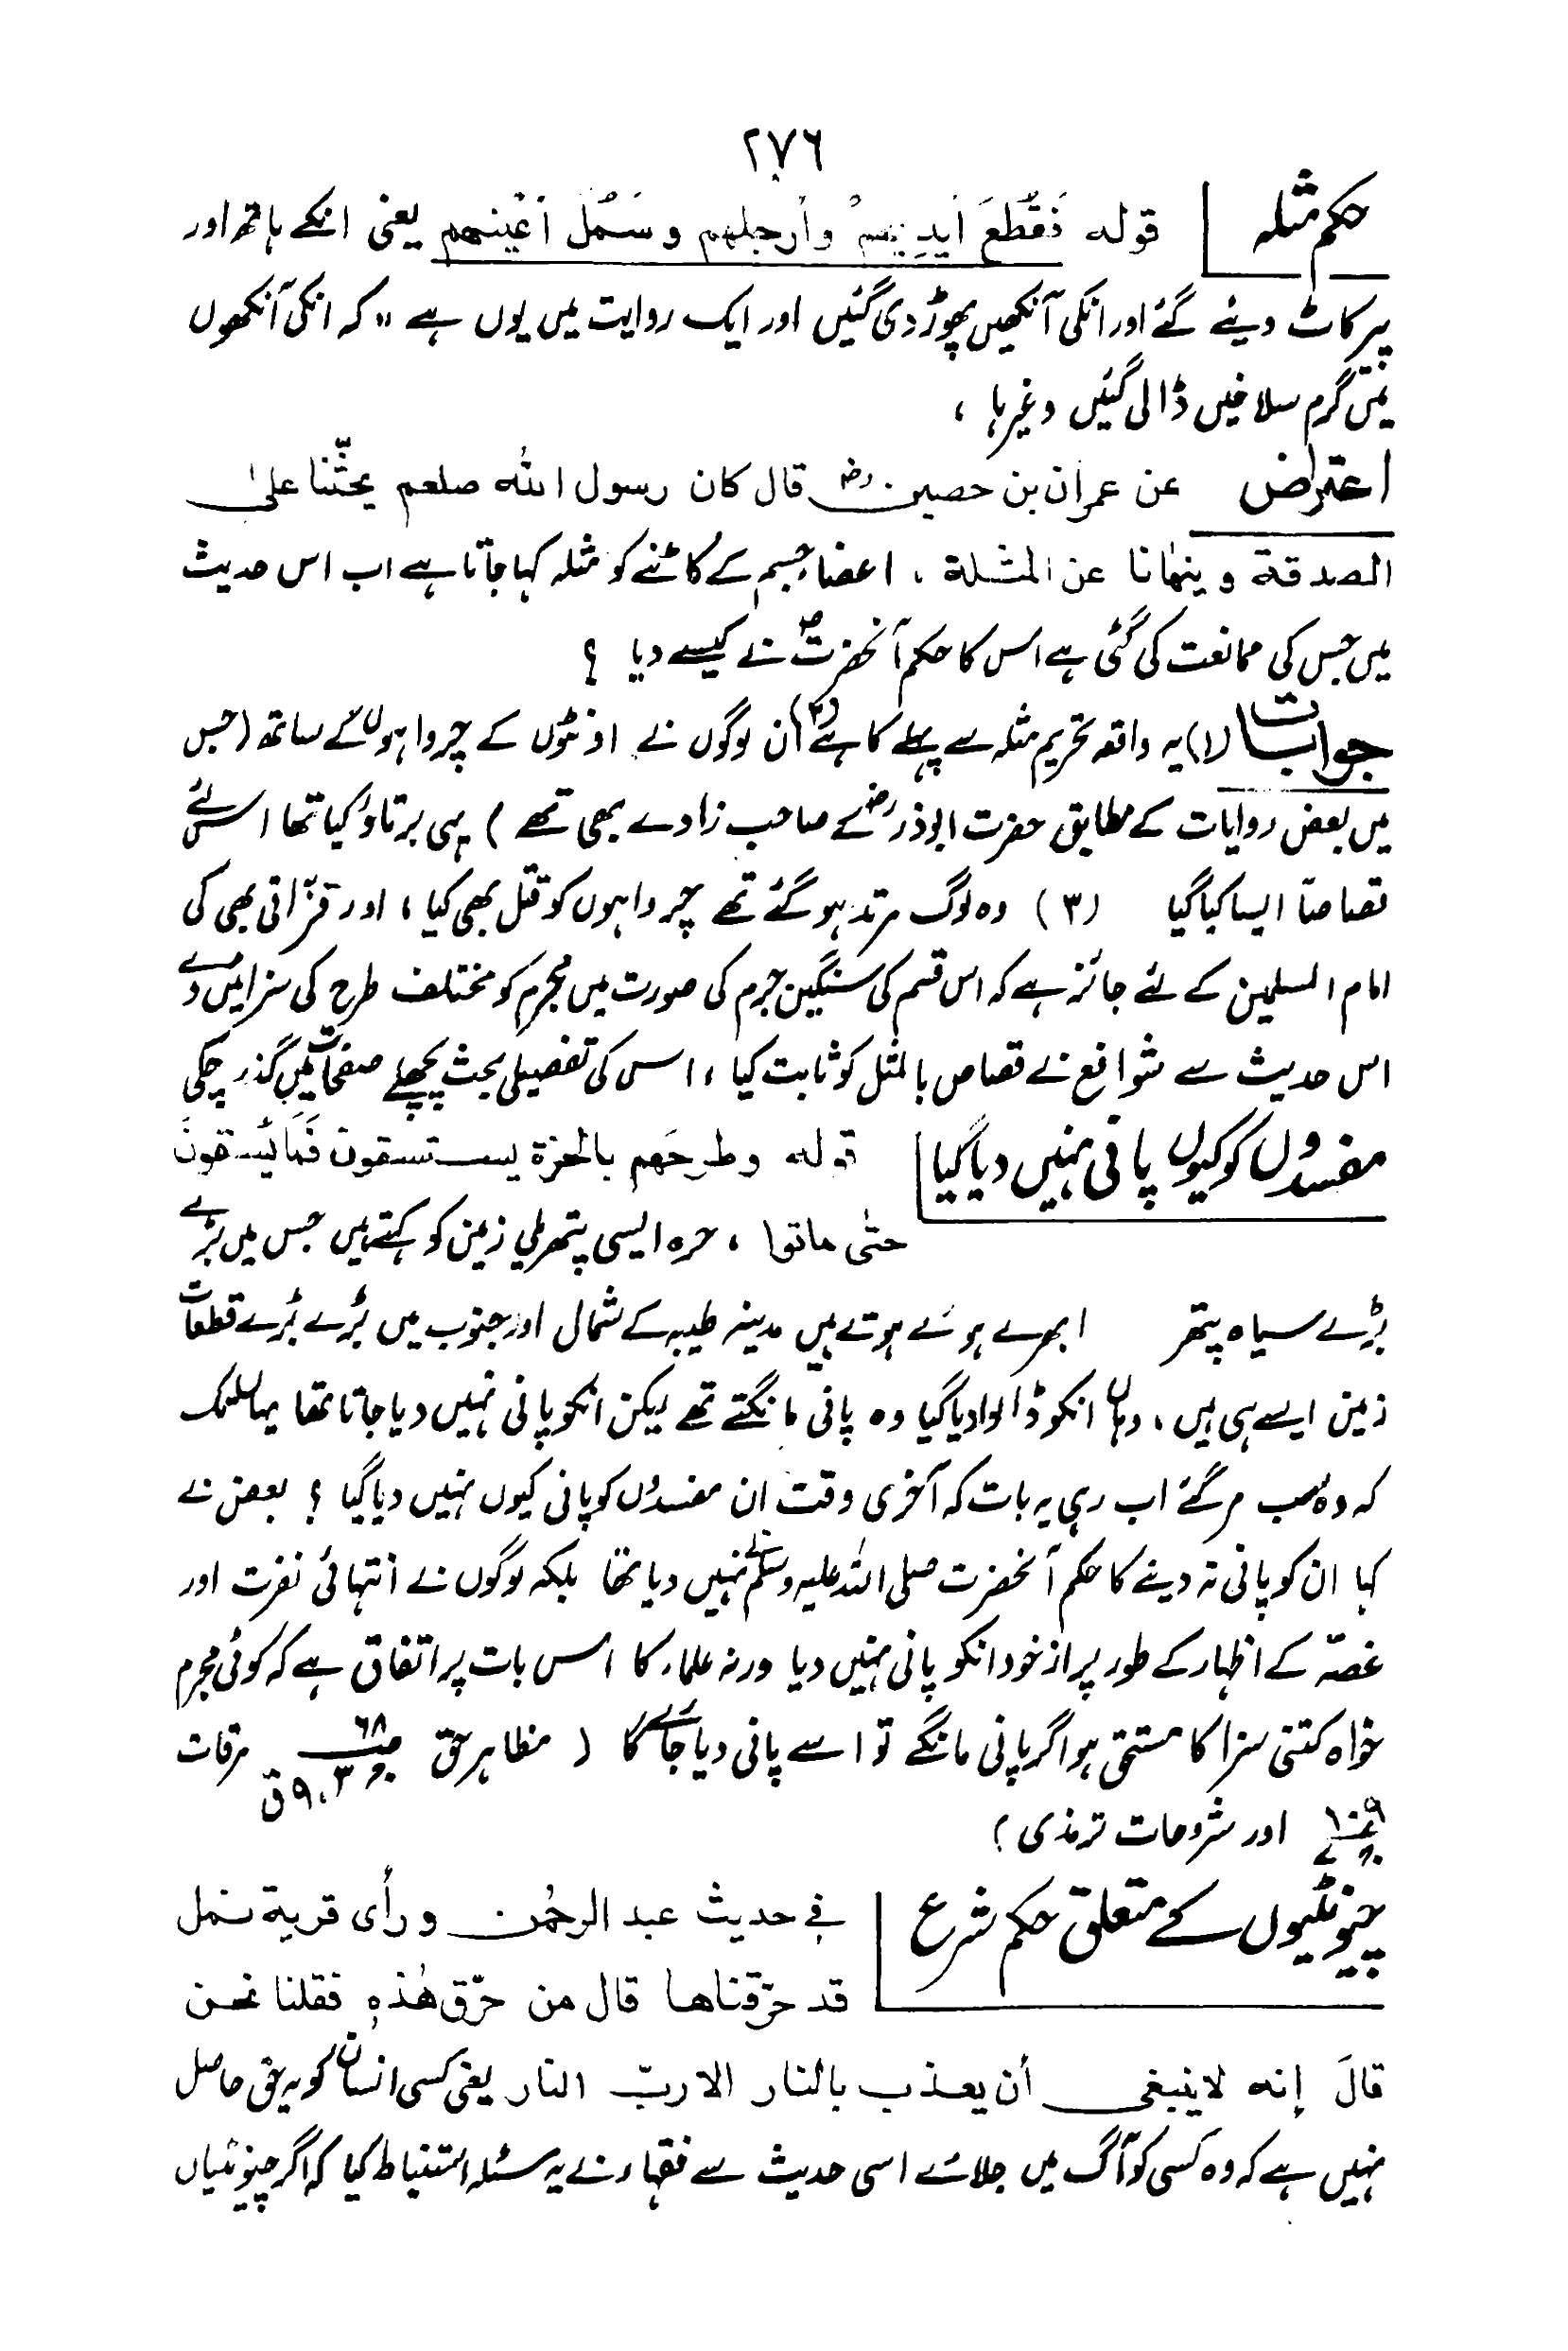 ٢٧٦
حکم مثلہ قولہ فَقَطَعَ اَیدِیہِمْ واَرجلهم و سَمُلَ اَعْینهم یعنی انکے ہاتھ اور
پیر کاٹ دیئے گئے اور انکی آنکھیں پھوڑ دی گئیں اور ایک روایت میں یوں ہے " کہ انکی آنکھوں
میں گرم سلاخیں ڈالی گئیں وغیرہا ،
اعتراض عن عمران بن حصین رض قال کان رسول اللہ صلعم یحثّنا علیٰ
الصدقة وینھٰانا عن المثلة ، اعضاء جسم کے کاٹنے کو مثلہ کہا جاتا ہے اب اس حدیث
میں جس کی ممانعت کی گئی ہے اس کا حکم آنحضرتؐ نے کیسے دیا ؟
جوابات (١) یہ واقعہ تحریم مثلہ سے پہلے کا ہے (٢) ان لوگوں نے اونٹوں کے چرواہوں کے ساتھ (جس
میں بعض روایات کے مطابق حضرت ابوذر رض کے صاحب زادے بھی تھے ) یہی برتاؤ کیا تھا اس لئے
قصاصًا ایسا کیا گیا (٣) وہ لوگ مرتد ہو گئے تھے چرواہوں کو قتل بھی کیا ، اور قزّاقی بھی کی
امام المسلمین کے لئے جائز ہے کہ اس قسم کی سنگین جرم کی صورت میں مجرم کو مختلف طرح کی سزائیں دے
اس حدیث سے شوافع نے قصاص بالمثل کو ثابت کیا ، اس کی تفصیلی بحث پچھلے صفحات میں گذر چکی
مفسدوں کو کیوں پانی نہیں دیا گیا قولہ وطرحَهم بالحرّة یستسقون فَمَا یُسقونَ
حتّٰی ماتوا ، حرہ ایسی پتھریلی زمین کو کہتے ہیں جس میں بڑے
بڑے سیاہ پتھر ابھرے ہوئے ہوتے ہیں مدینہ طیبہ کے شمال اور جنوب میں بڑے بڑے قطعات
زمین ایسے ہی ہیں ، وہاں انکو ڈالوا دیا گیا وہ پانی مانگتے تھے لیکن انکو پانی نہیں دیا جاتا تھا یہاں تک
کہ وہ سب مر گئے اب رہی یہ بات کہ آخری وقت ان مفسدوں کو پانی کیوں نہیں دیا گیا ؟ بعض نے
کہا ان کو پانی نہ دینے کا حکم آنحضرت صلی اللہ علیہ وسلم نے نہیں دیا تھا بلکہ لوگوں نے انتہائی نفرت اور
غصّہ کے اظہار کے طور پر از خود انکو پانی نہیں دیا ورنہ علماء کا اس بات پر اتفاق ہے کہ کوئی مجرم
خواہ کتنی سزا کا مستحق ہو اگر پانی مانگے تو اسے پانی دیا جائے گا ( مظاہر حق ص ٦٨ مرقات
اور شروحات ترمذی )
چیونٹیوں کے متعلق حکم شرع فی حدیث عبد الرحمٰن ورأی قریة نمل
قد حرّقناها قال من حرّق هٰذهٖ فقلنا نحن
قالَ إنه لاینبغی أن یعذب بالنار الا ربّ النار یعنی کسی انسان کو یہ حق حاصل
نہیں ہے کہ وہ کسی کو آگ میں جلائے اسی حدیث سے فقہاء نے یہ مسئلہ استنباط کیا کہ اگر چیونٹیاں